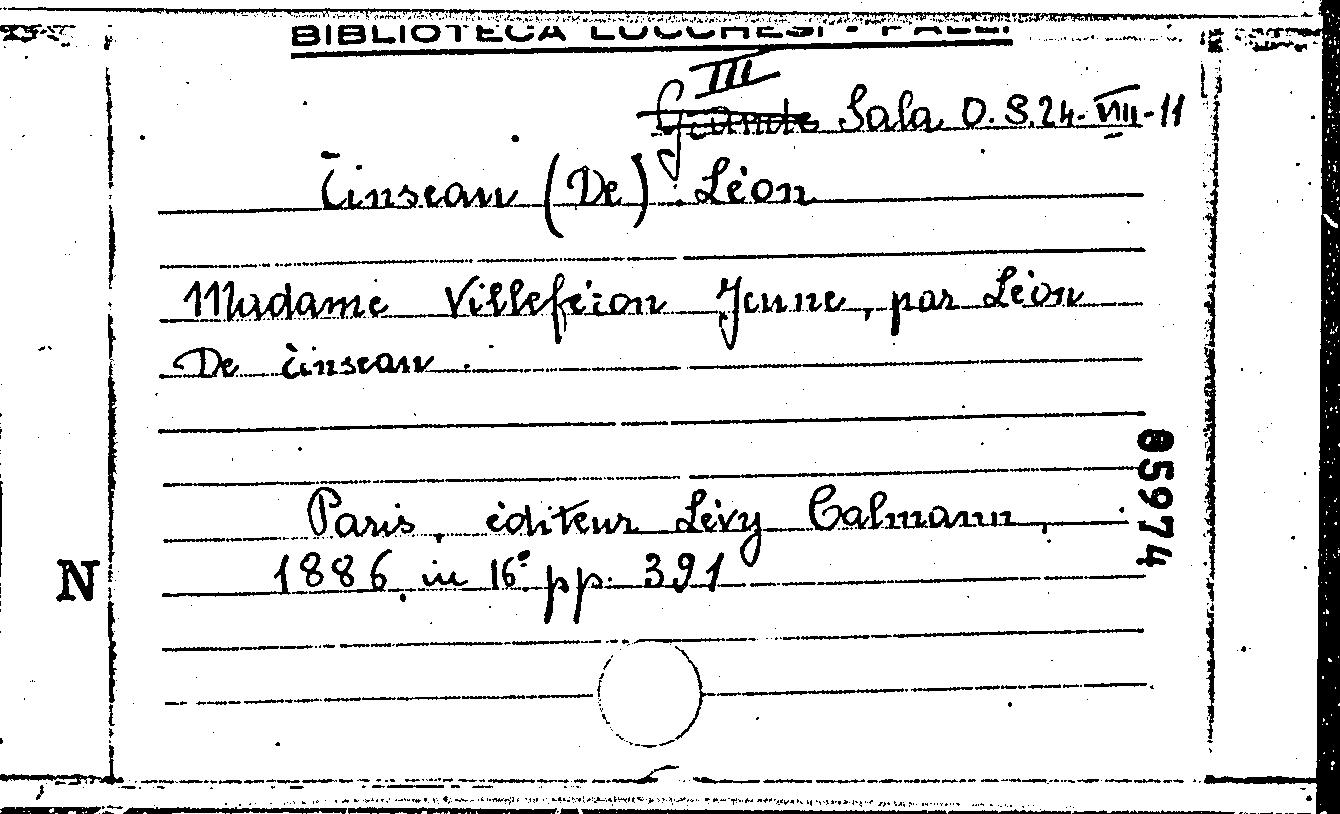 BIBLIOTECA LUCCHESI - PALLI
III
Grande Sala O. S. 24-VIII-11
Tinseau (De) Léon
Madame Villeféron Jeune, par Léon
De Tinseau.
Paris, éditeur Lévy Calmann,
1886, in 16° pp. 391
N
85974